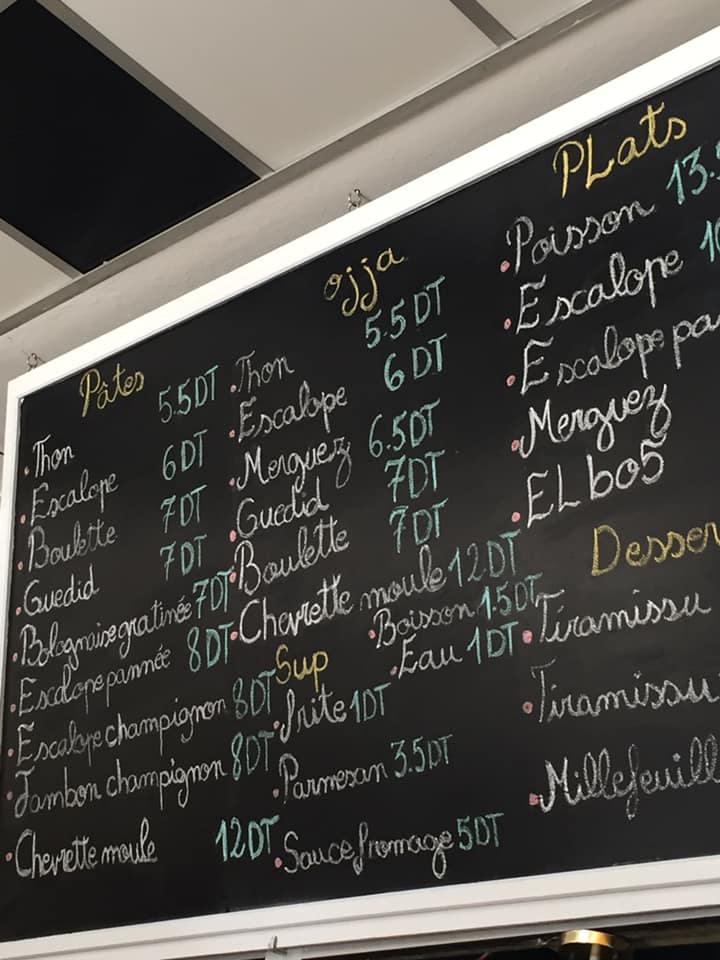 Pâtes
Thon 5.5DT
Escalope 6DT
Boulette 7DT
Guedid 7DT
Bolognaise gratinée 7DT
Escalope pannée 8DT
Escalope champignon 8DT
Jambon champignon 8DT
Chevrette moule 12DT
ojja
Thon 5.5DT
Escalope 6DT
Merguez 6.5DT
Guedid 7DT
Boulette 7DT
Chevrette moule 12DT
Boisson 1.5DT
Eau 1DT
Sup
frite 1DT
Parmesan 3.5DT
Sauce fromage 5DT
PLats
Poisson 13.
Escalope 1
Escalope pa
Merguez
EL bo5
Desser
Tiramissu
Tiramissu
Millefeuill